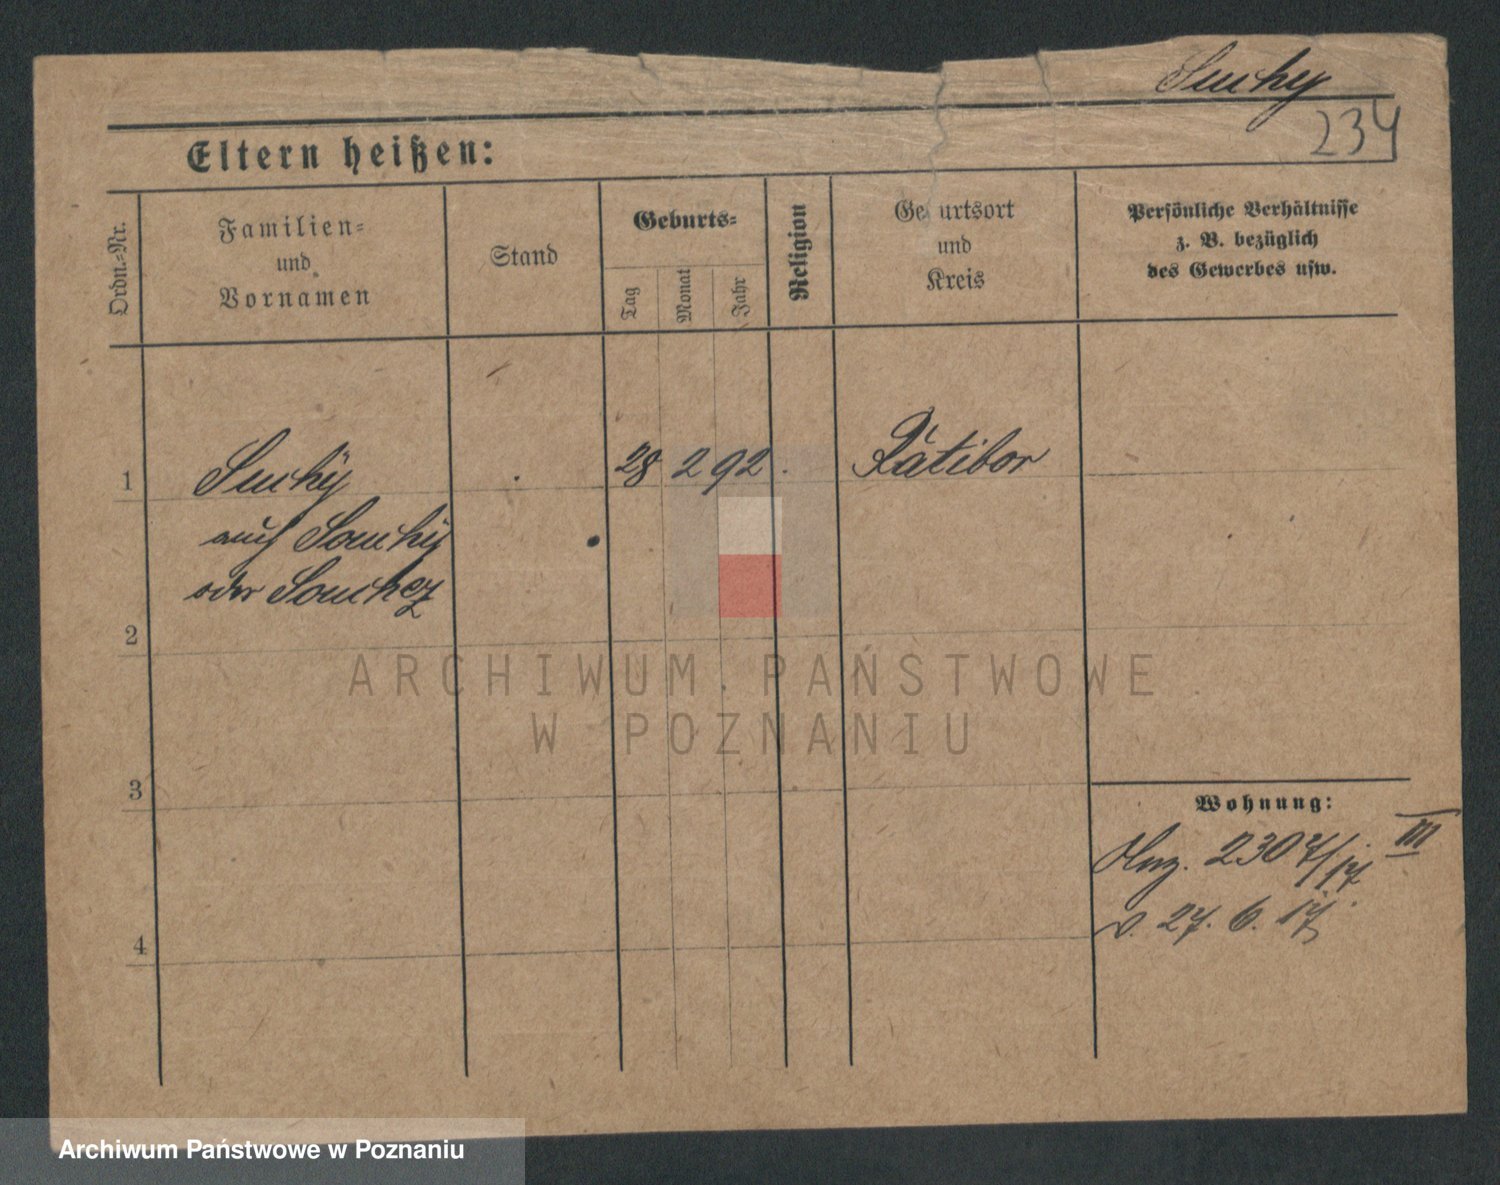 Suchy
234
Eltern heißen:
Ordn.-Nr.
Familien-
und
Vornamen
Stand
Geburts-
Tag
Monat
Jahr
Religion
Geburtsort
und
Kreis
Persönliche Verhältnisse
z. B. bezüglich
des Gewerbes usw.
1 Suchÿ 28 2 92. Ratibor
auch Souchÿ
oder Souchez
2
3
4
Wohnung:
230 7/17 III
v. 27. 6. 17.
ARCHIWUM PAŃSTWOWE
W POZNANIU
Archiwum Państwowe w Poznaniu